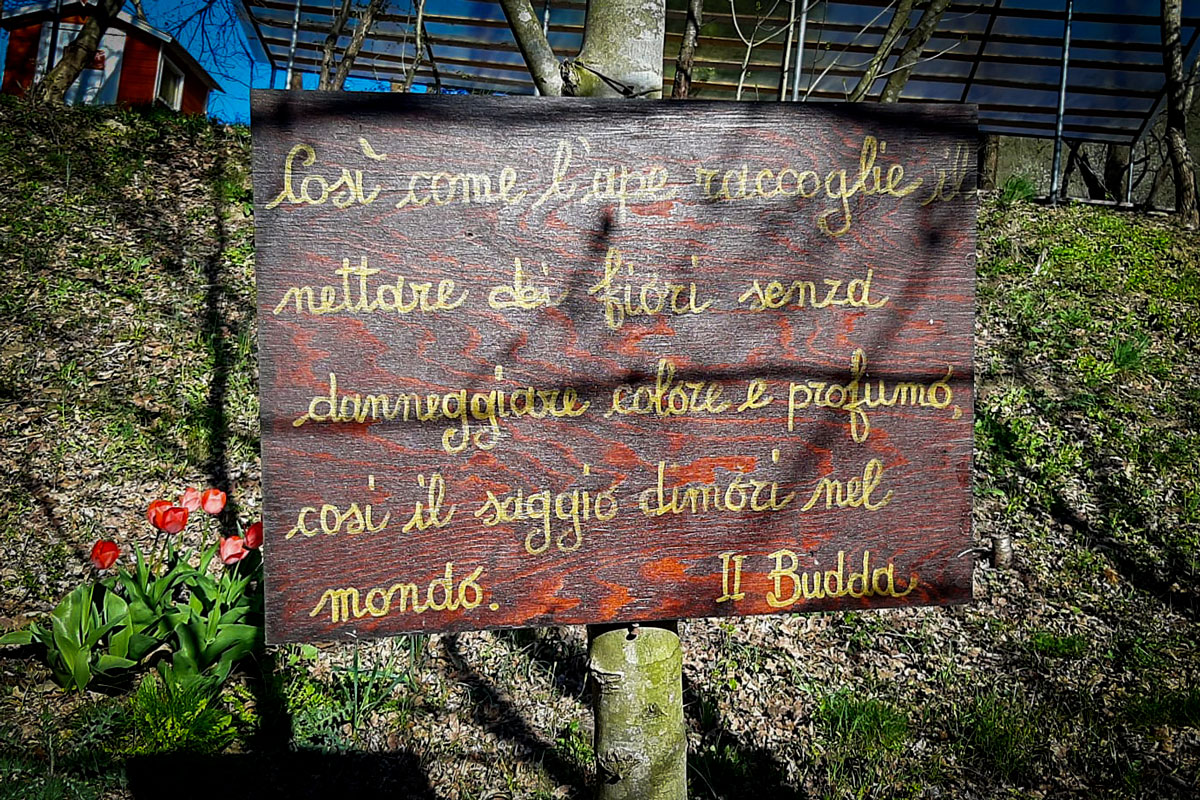 Così come l'ape raccoglie il
nettare dei fiori senza
danneggiare colore e profumo,
cosi il saggio dimori nel
mondo.
II Budda